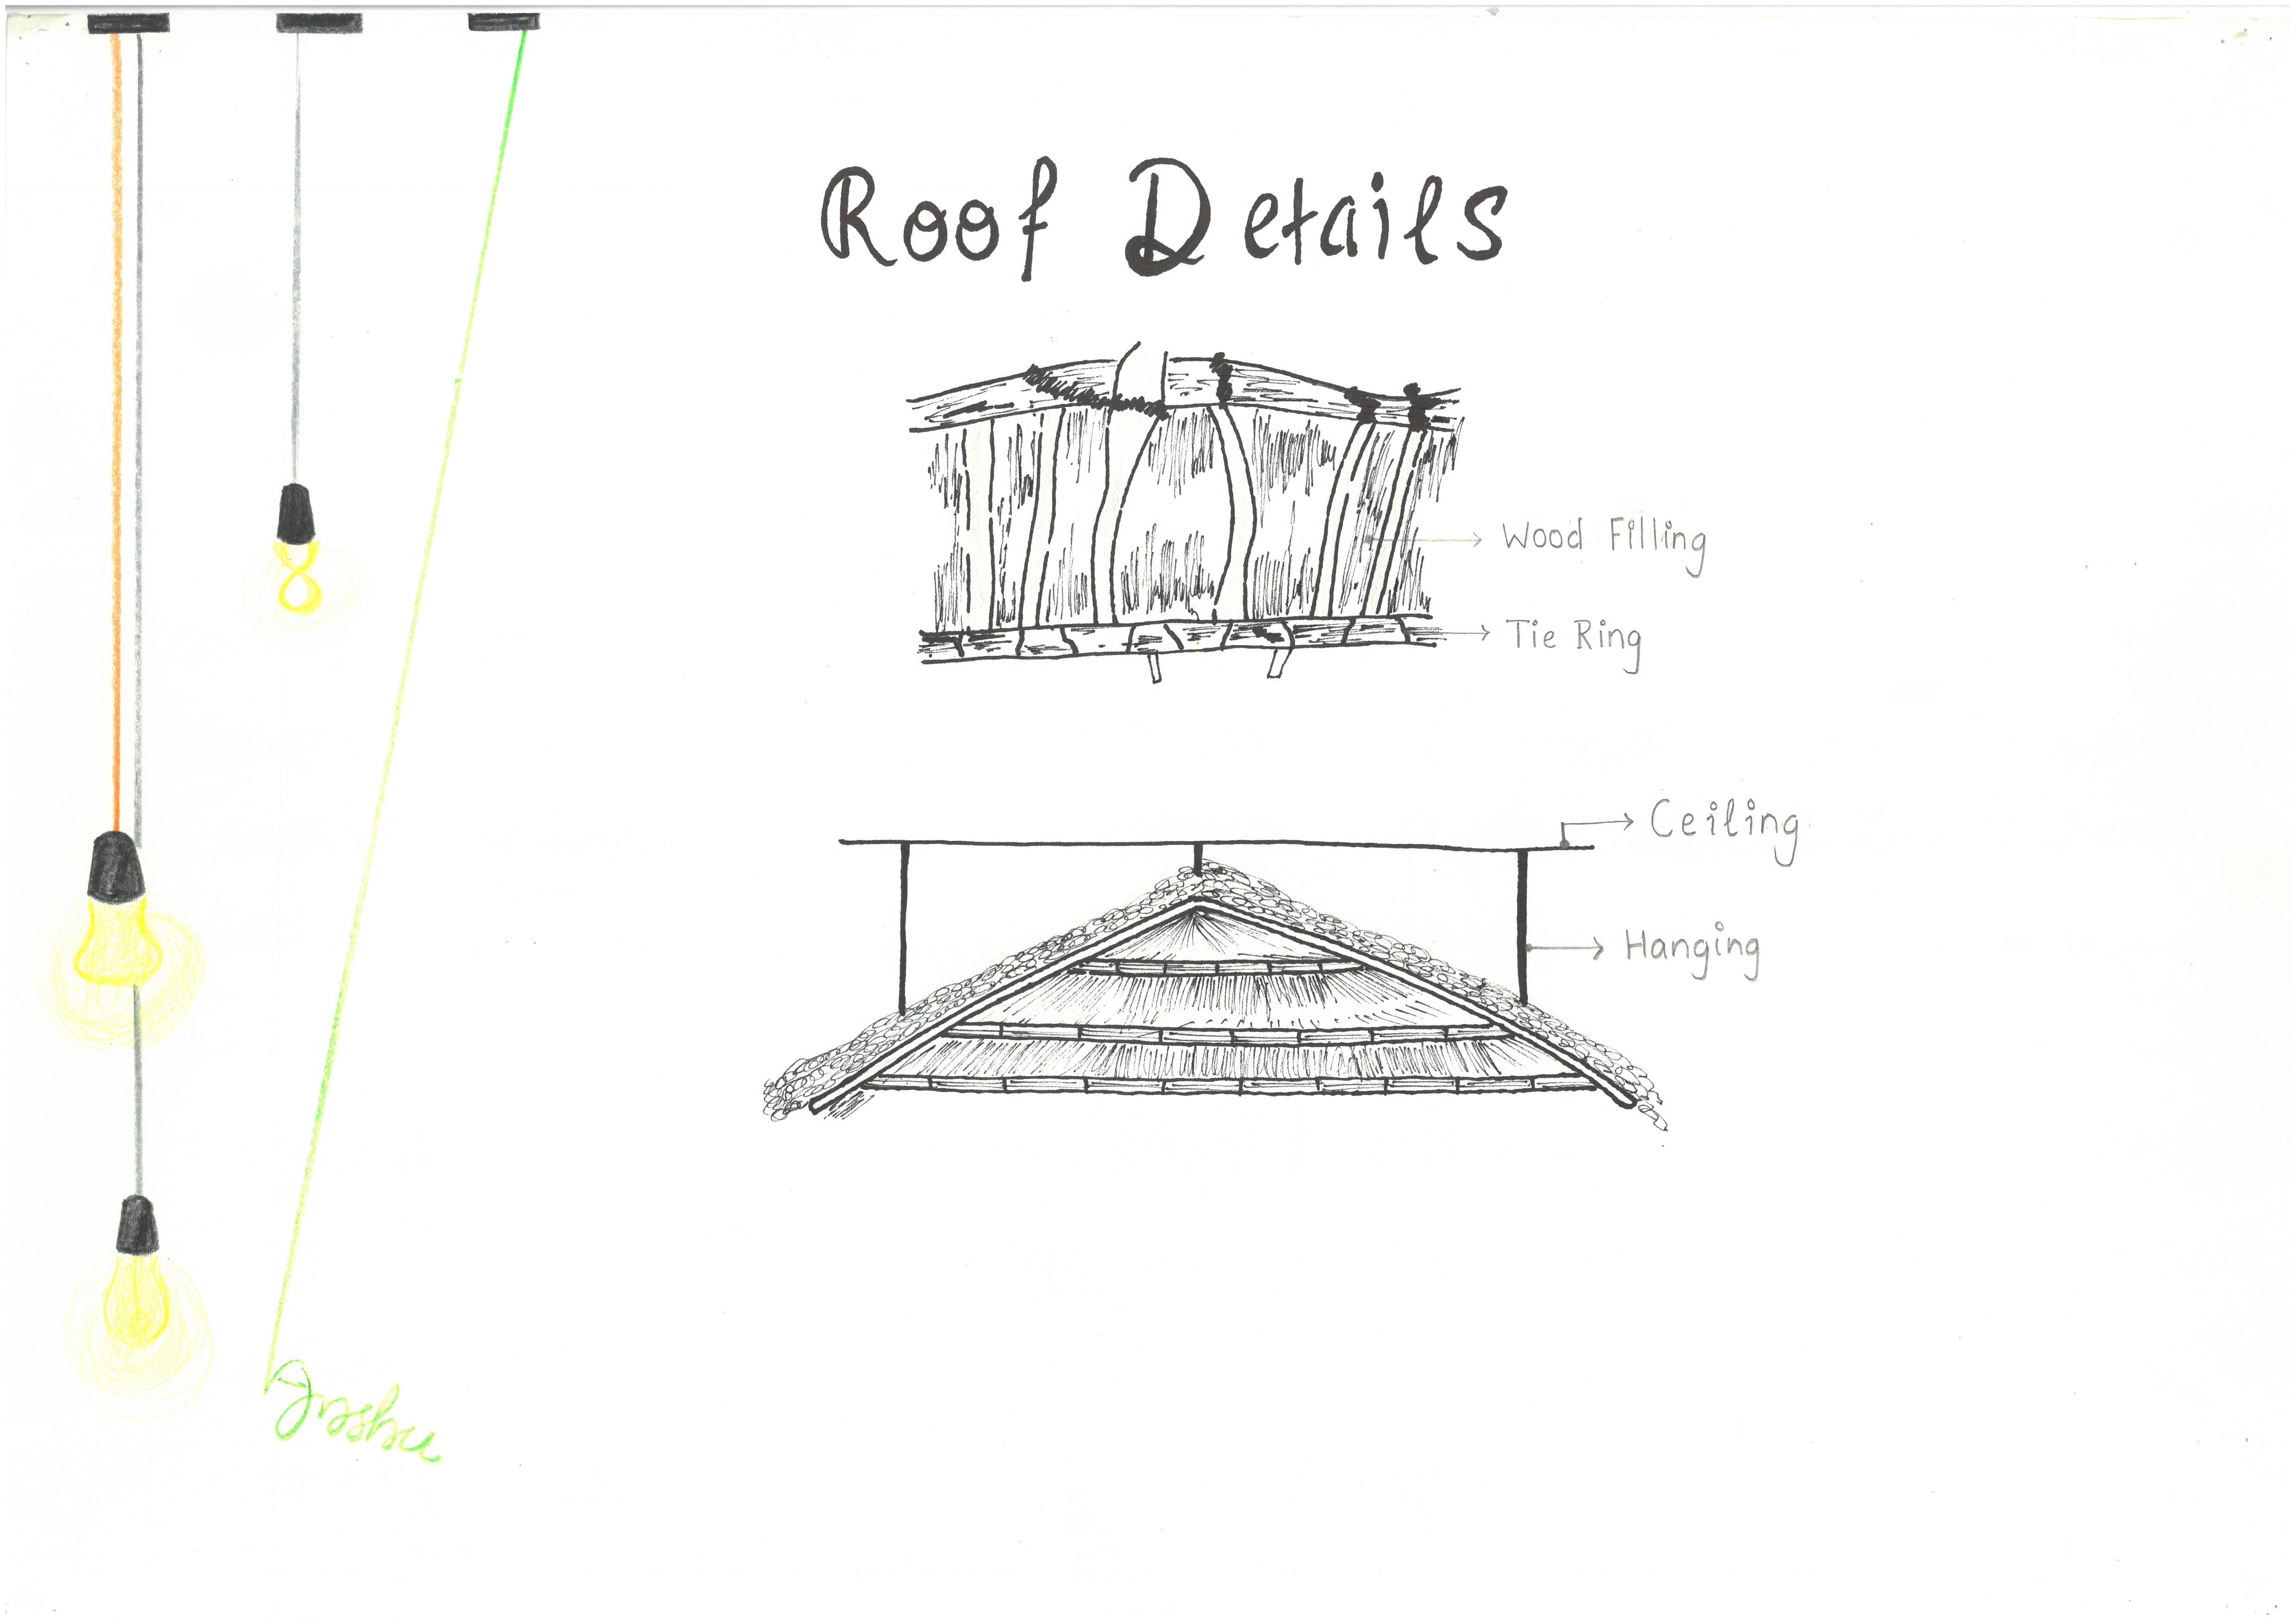 Roof Details
Wood Filling
Tie Ring
Ceiling
Hanging